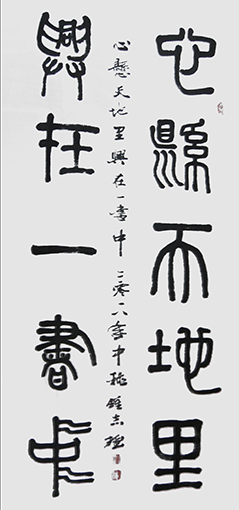 心縣天地里
興在一書中
心懸天地里興在一書中二零一八年中秋